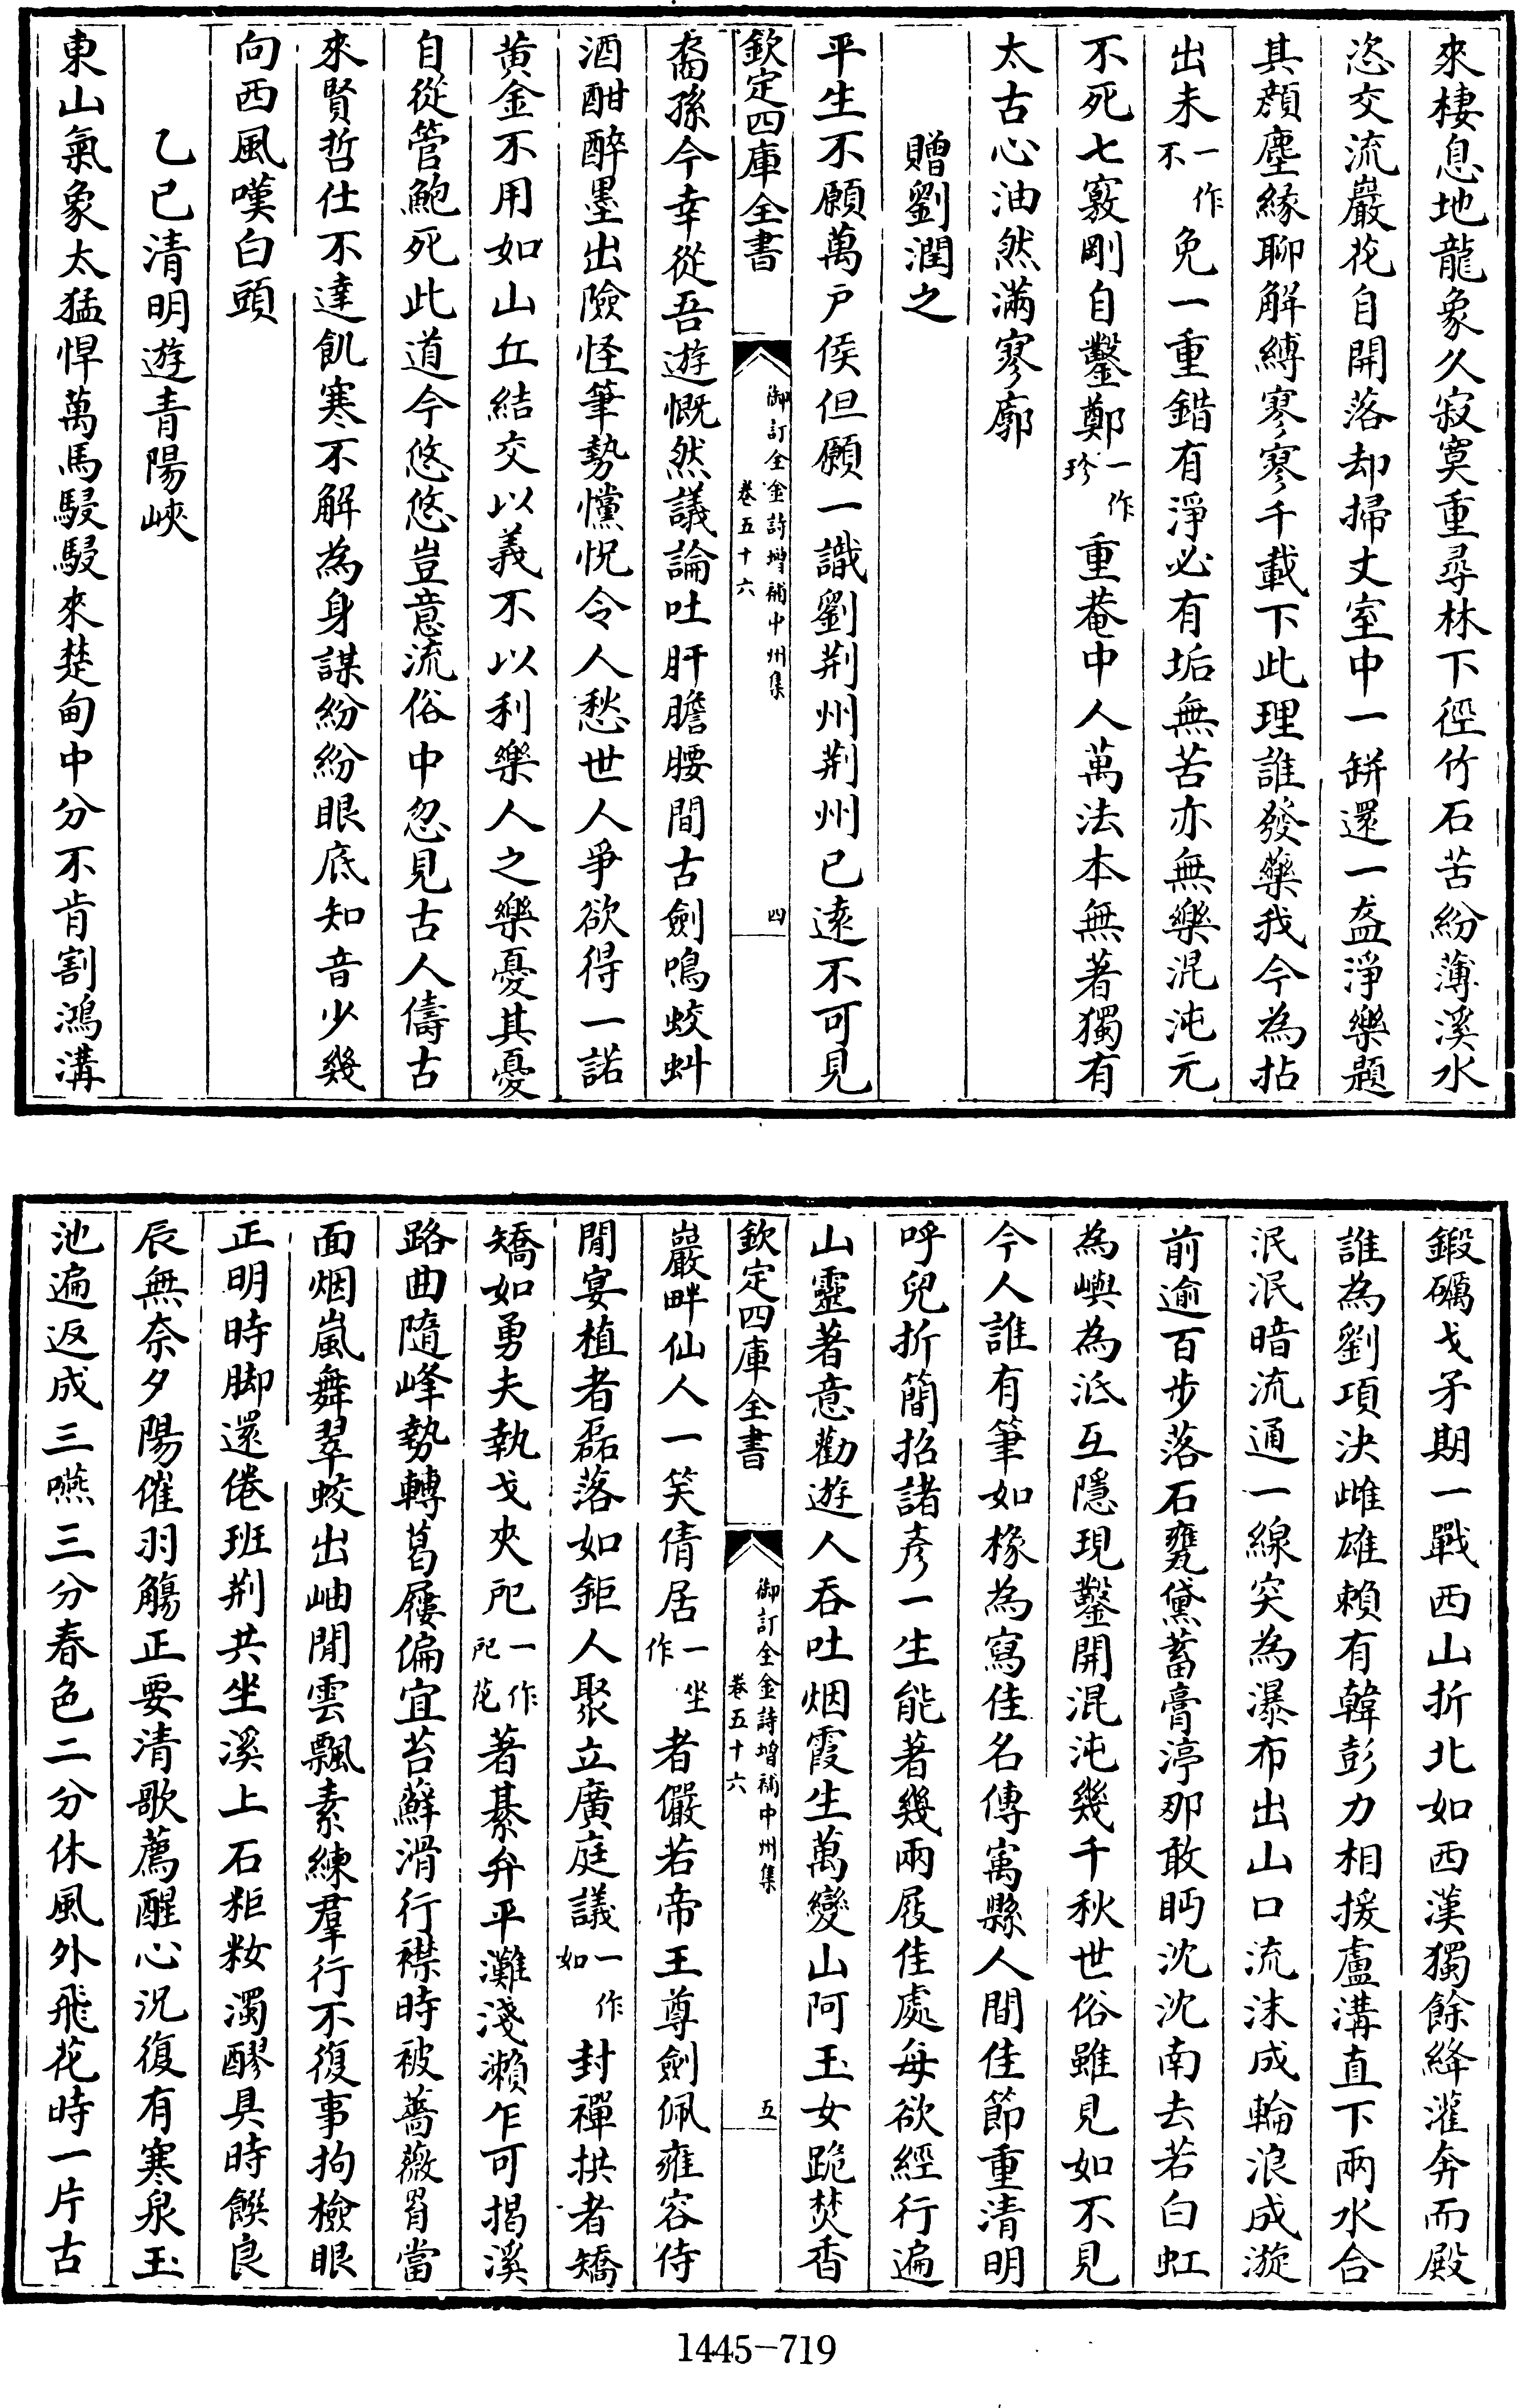 來棲息地龍象久寂寞重尋林下徑竹石苦紛薄溪水
恣交流巖花自開落却掃丈室中一缾還一盋淨樂題
其顔塵緣聊解縛寥寥千載下此理誰發藥我今為拈
出未一作不免一重錯有淨必有垢無苦亦無樂混沌元
不死七竅剛自鑿鄭一作珍重菴中人萬法本無著獨有
太古心油然滿寥廓
贈劉潤之
平生不願萬戶侯但願一識劉荆州荆州已遠不可見
欽定四庫全書
御訂全金詩增補中州集
卷五十六
四
裔孫今幸從吾遊慨然議論吐肝膽腰間古劍鳴蛟虯
酒酣醉墨出險怪筆勢戃怳令人愁世人爭欲得一諾
黄金不用如山丘結交以義不以利樂人之樂憂其憂
自從管鮑死此道今悠悠豈意流俗中忽見古人儔古
來賢哲仕不達飢寒不解為身謀紛紛眼底知音少幾
向西風嘆白頭
乙巳清明遊青陽峽
東山氣象太猛悍萬馬駸駸來楚甸中分不肯割鴻溝
鍛礪戈矛期一戰西山折北如西漢獨餘絳灌奔而殿
誰為劉項決雌雄賴有韓彭力相援盧溝直下兩水合
泯泯暗流通一線突為瀑布出山口流沫成輪浪成漩
前逾百步落石甕黛蓄膏渟那敢眄沈沈南去若白虹
為嶼為泜互隱現鑿開混沌幾千秋世俗雖見如不見
今人誰有筆如椽為寫佳名傳寓縣人間佳節重清明
呼兒折簡招諸彥一生能著幾兩屐佳處每欲經行遍
山靈著意勸遊人吞吐烟霞生萬變山阿玉女跪焚香
欽定四庫全書
御訂全金詩增補中州集
卷五十六
五
巖畔仙人一笑倩居一作坐者儼若帝王尊劍佩雍容侍
閒宴植者磊落如鉅人聚立廣庭議一作如封禪拱者矯
矯如勇夫執戈夾戺一作戺戺著綦弁平灘淺瀨乍可揭溪
路曲隨峰勢轉葛屨偏宜苔蘚滑行襟時被薔薇罥當
面烟嵐舞翠蛟出岫閒雲飄素練羣行不復事拘檢眼
正明時脚還倦班荆共坐溪上石粔籹濁醪具時饌良
辰無奈夕陽催羽觴正要清歌薦醒心況復有寒泉玉
池遍返成三嚥三分春色二分休風外飛花時一片古
1445-719